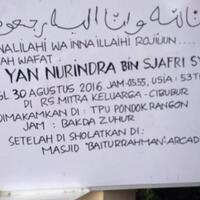 إنا لله وإنا إليه راجعون
NALILAHI WA INNA ILLAIHI ROJIUUN
AH WAFAT :
YAN NURINDRA BIN SJAFRI S
GL 30 AGUSTUS 2016, JAM : 03.55, USIA : 53 T
DI RS MITRA KELUARGA - CIBUBUR
DIMAKAMKAN DI : TPU PONDOK RANGON
JAM : BAKDA ZUHUR
SETELAH DI SHOLATKAN DI :
MASJID "BAITURRAHMAN" ARCAD